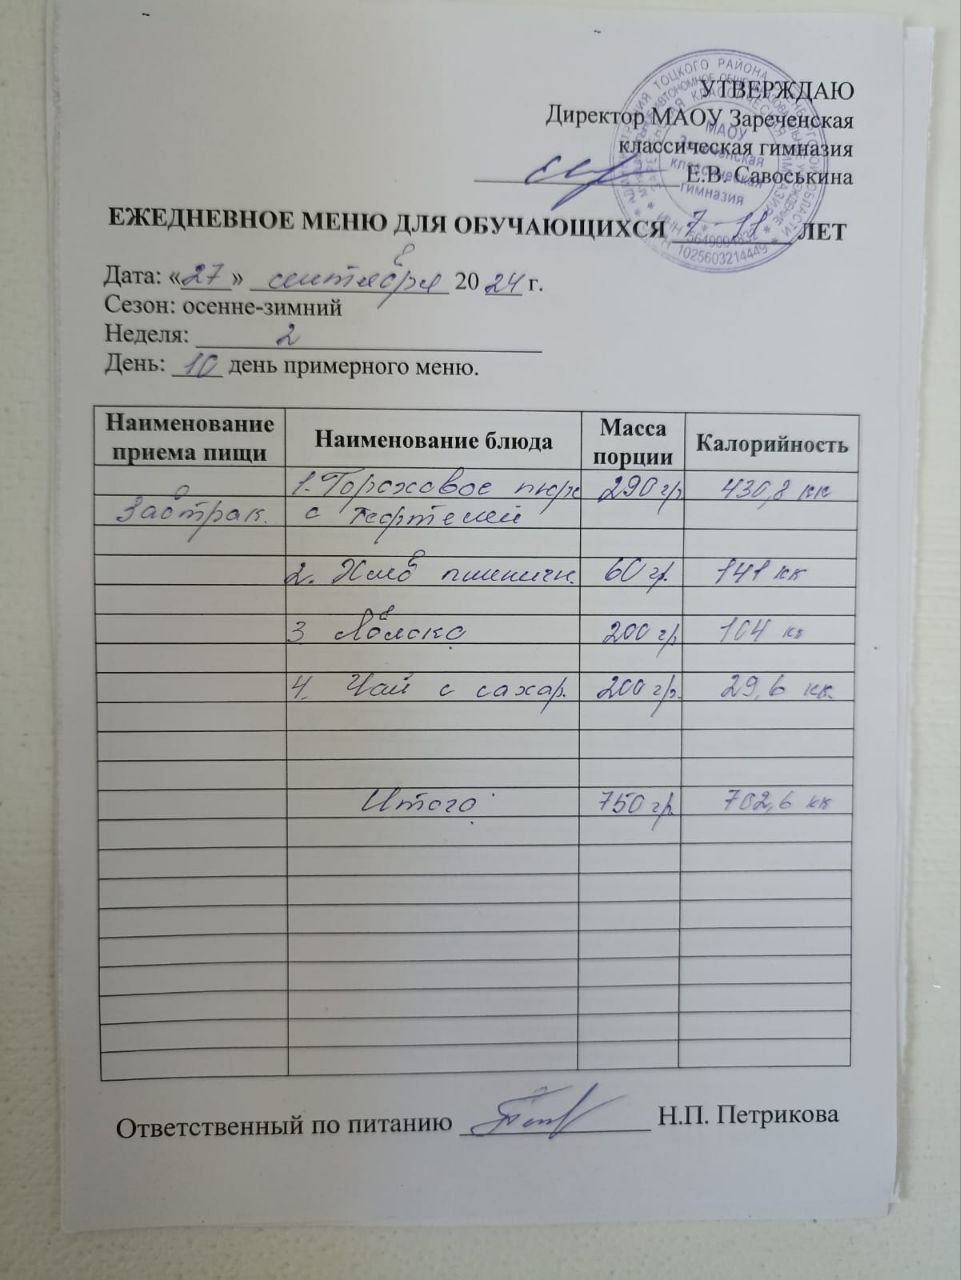 УТВЕРЖДАЮ
Директор МАОУ Зареченская
классическая гимназия
Е.В. Савоськина
МАОУ
Зареченская
классическая
гимназия
1025603214449
ЕЖЕДНЕВНОЕ МЕНЮ ДЛЯ ОБУЧАЮЩИХСЯ 7 - 11 ЛЕТ
Дата: «27» сентября 2024 г.
Сезон: осенне-зимний
Неделя: 2
День: 10 день примерного меню.
Наименование приема пищи Наименование блюда Масса порции Калорийность
1. Гороховое пюре 290 гр 430,8 кк
Завтрак. с тефтелей
2. Хлеб пшеничн. 60 гр. 141 кк
3 Яблоко 200 гр 104 кк
4. Чай с сахар. 200 гр. 29,6 кк.
Итого 750 гр. 702,6 кк
Ответственный по питанию Н.П. Петрикова